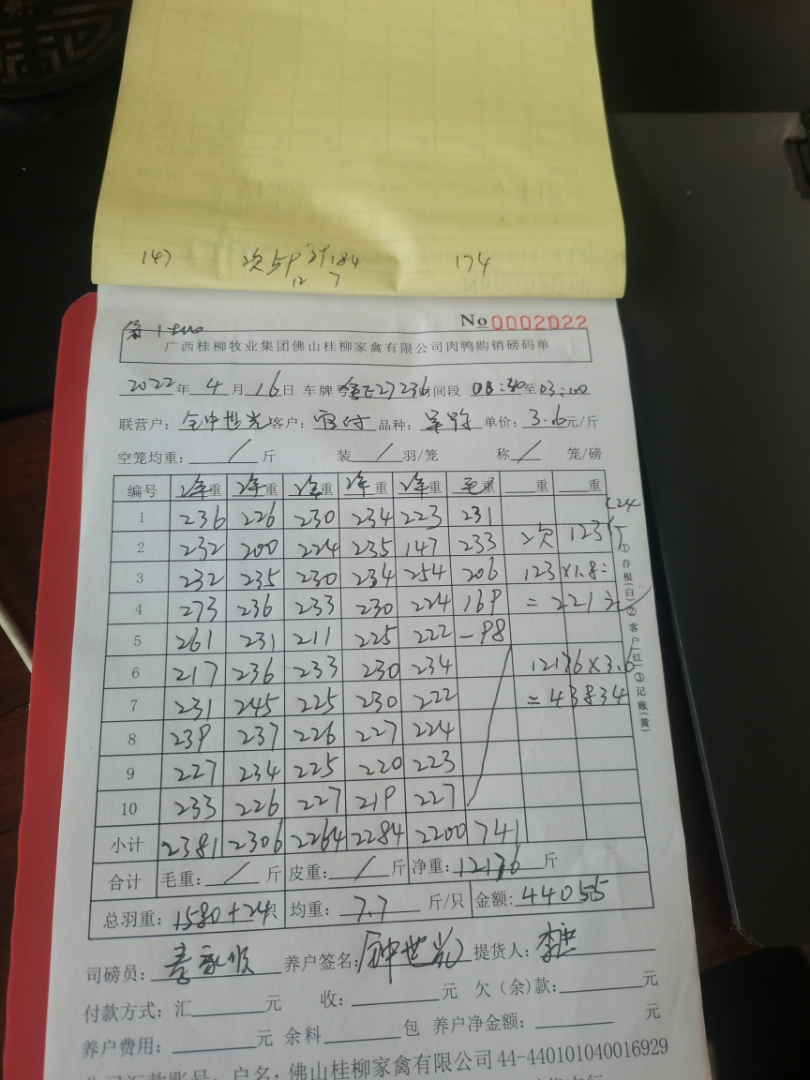 147 次5P 184 174
12 7
No 0002022
广西桂柳牧业集团佛山桂柳家禽有限公司肉鸭购销磅码单
2022年 4月 16日 车牌号 27236 时间段 至 03:00
联营户: 客户: 品种: 单价: 3.6元/斤
空笼均重: / 斤 装 / 羽/笼 称 / 笼/磅
编号 重 重 重 重 重 毛重 重 重
1 236 226 230 234 223 231
2 232 200 224 235 147 233 次 123斤
3 232 235 230 234 254 206 123×1.8=
4 273 236 233 230 224 169 =221元
5 261 231 211 225 222 -98
6 217 236 233 230 234 12176×3.6
7 231 245 225 230 222 =43834
8 239 237 226 227 224
9 227 234 225 220 223
10 233 226 227 219 227
小计 2381 2306 2264 2284 2200 741
合计 毛重: / 斤 皮重: / 斤 净重: 12176 斤
总羽重: 1580+24只 均重: 7.7 斤/只 金额: 44055
①存根(白)②客户(红)③记账(黄)
司磅员: 养户签名: 钟世光 提货人:
付款方式: 汇 元 收: 元 欠(余)款: 元
养户费用: 元 余料 包 养户净金额: 元
公司汇款账号: 户名: 佛山桂柳家禽有限公司 44-440101040016929